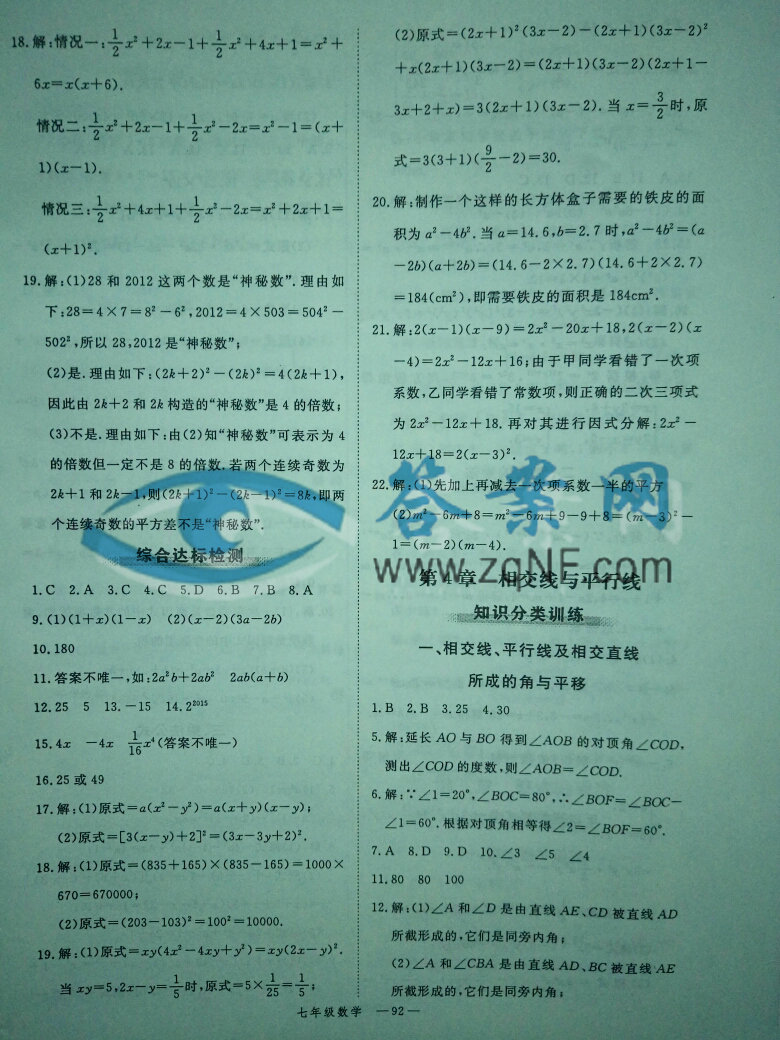 18.解:情况一:1/2x²+2x-1+1/2x²+4x+1=x²+
6x=x(x+6).
情况二:1/2x²+2x-1+1/2x²-2x=x²-1=(x+
1)(x-1).
情况三:1/2x²+4x+1+1/2x²-2x=x²+2x+1=
(x+1)².
19.解:(1)28 和 2012 这两个数是“神秘数”.理由如
下:28=4×7=8²-6²,2012=4×503=504²-
502²,所以 28,2012 是“神秘数”;
(2)是.理由如下:(2k+2)²-(2k)²=4(2k+1),
因此由 2k+2 和 2k 构造的“神秘数”是 4 的倍数;
(3)不是.理由如下:由(2)知“神秘数”可表示为 4
的倍数但一定不是 8 的倍数.若两个连续奇数为
2k+1 和 2k-1,则(2k+1)²-(2k-1)²=8k,即两
个连续奇数的平方差不是“神秘数”.
综合达标检测
1.C 2.A 3.C 4.C 5.D 6.B 7.B 8.A
9.(1)(1+x)(1-x) (2)(x-2)(3a-2b)
10.180
11.答案不唯一,如:2a²b+2ab² 2ab(a+b)
12.25 5 13.-15 14.2²⁰¹⁵
15.4x -4x 1/16x⁴(答案不唯一)
16.25 或 49
17.解:(1)原式=a(x²-y²)=a(x+y)(x-y);
(2)原式=[3(x-y)+2]²=(3x-3y+2)².
18.解:(1)原式=(835+165)×(835-165)=1000×
670=670000;
(2)原式=(203-103)²=100²=10000.
19.解:(1)原式=xy(4x²-4xy+y²)=xy(2x-y)².
当 xy=5,2x-y=1/5时,原式=5×1/25=1/5;
(2)原式=(2x+1)²(3x-2)-(2x+1)(3x-2)²
+x(2x+1)(3x-2)=(2x+1)(3x-2)(2x+1-
3x+2+x)=3(2x+1)(3x-2).当 x=3/2时,原
式=3(3+1)(9/2-2)=30.
20.解:制作一个这样的长方体盒子需要的铁皮的面
积为 a²-4b².当 a=14.6,b=2.7 时,a²-4b²=(a
-2b)(a+2b)=(14.6-2×2.7)(14.6+2×2.7)
=184(cm²),即需要铁皮的面积是 184cm².
21.解:2(x-1)(x-9)=2x²-20x+18,2(x-2)(x
-4)=2x²-12x+16;由于甲同学看错了一次项
系数,乙同学看错了常数项,则正确的二次三项式
为 2x²-12x+18.再对其进行因式分解:2x²-
12x+18=2(x-3)².
22.解:(1)先加上再减去一次项系数一半的平方
(2)m²-6m+8=m²-6m+9-9+8=(m-3)²-
1=(m-2)(m-4).
第 4 章 相交线与平行线
知识分类训练
一、相交线、平行线及相交直线
所成的角与平移
1.B 2.B 3.25 4.30
5.解:延长 AO 与 BO 得到∠AOB 的对顶角∠COD,
测出∠COD 的度数,则∠AOB=∠COD.
6.解:∵∠1=20°,∠BOC=80°,∴∠BOF=∠BOC-
∠1=60°.根据对顶角相等得∠2=∠BOF=60°.
7.A 8.D 9.D 10.∠3 ∠5 ∠4
11.80 80 100
12.解:(1)∠A 和∠D 是由直线 AE、CD 被直线 AD
所截形成的,它们是同旁内角;
(2)∠A 和∠CBA 是由直线 AD、BC 被直线 AE
所截形成的,它们是同旁内角;
七年级数学 —92—
答案网
www.zqNE.com